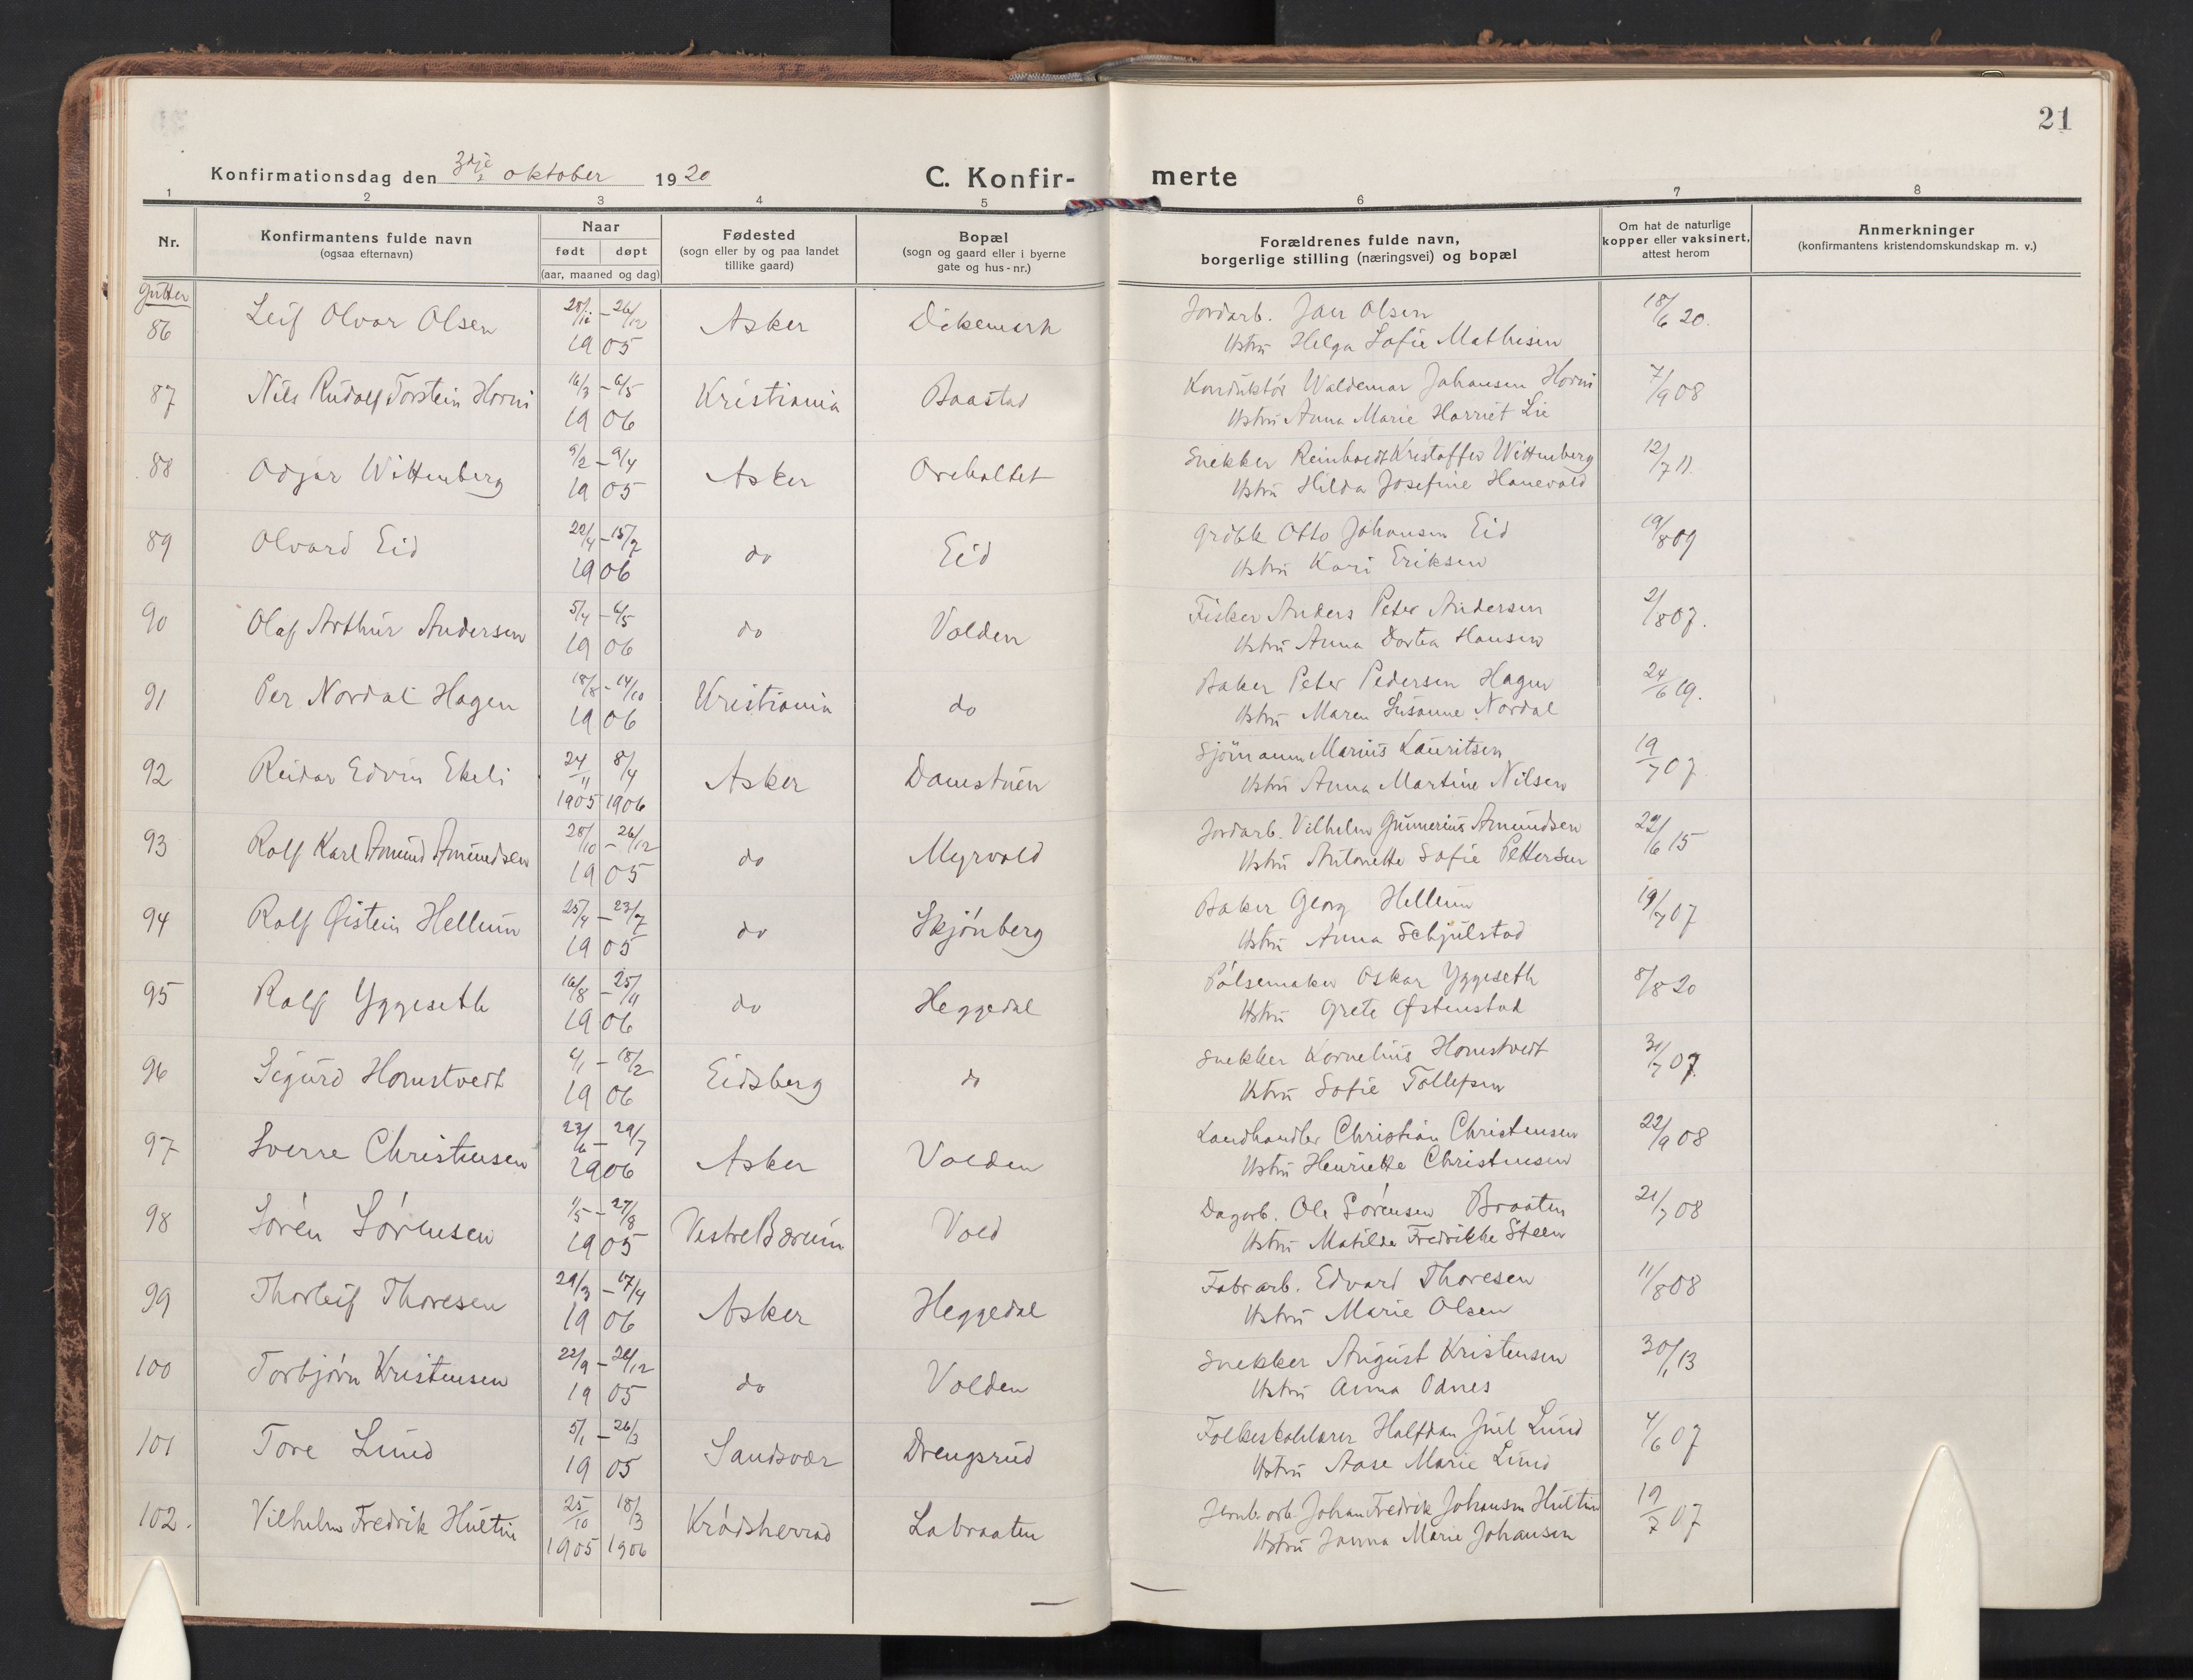 21
Konfirmationsdag den 3dje oktober 1920
C. Konfir-merte
1 2 3 4 5 6 7 8
Nr.
Konfirmantens fulde navn
(ogsaa efternavn)
Naar
født døpt
(aar, maaned og dag)
Fødested
(sogn eller by og paa landet
tillike gaard)
Bopæl
(sogn og gaard eller i byerne
gate og hus-nr.)
Forældrenes fulde navn,
borgerlige stilling (næringsvei) og bopæl
Om hat de naturlige
kopper eller vaksinert,
attest herom
Anmerkninger
(konfirmantens kristendomskundskap m. v.)
Gutter
86 Leif Olvar Olsen 28/11 - 26/12 Asker Dikemark Jordarb. Jan Olsen 18/6 20.
1905 Ustru Helga Sofie Mathisen
87 Nils Rudolf Torstein Horni 16/3 - 6/5 Kristiania Baastad Konduktør Waldemar Johansen Horni 7/9 08
1906 Ustru Anna Marie Harriet Lie
88 Odgar Wittenberg 9/2 - 9/4 Asker Oreholtet Snekker Reinholdt Kristoffer Wittenberg 12/7 11.
1905 Ustru Hilda Josefine Hanevold
89 Olvard Eid 22/4 - 15/7 do Eid Grdbk Otto Johansen Eid 19/8 09
1906 Ustru Kari Eriksen
90 Olaf Arthur Andersen 5/4 - 6/5 do Volden Fisker Anders Peter Andersen 2/8 07.
1906 Ustru Anna Dortea Hansen
91 Per Nordal Hagen 18/8 - 14/10 Kristiania do Baker Peter Pedersen Hagen 24/6 19.
1906 Ustru Maren Susanne Nordal
92 Reidar Edvin Ekeli 24/11 8/4 Asker Damstuen Sjömann Marius Lauritsen 19/7 07
1905 1906 Ustru Anna Martine Nilsen
93 Rolf Karl Amund Amundsen 28/10 - 26/12 do Myrvold Jordarb. Vilhelm Gunnerius Amundsen 22/6 15
1905 Ustru Antonette Sofie Pettersen
94 Rolf Øistein Hellum 25/4 - 23/7 do Skjønberg Baker Georg Hellum 19/7 07
1905 Ustru Anna Schjulstad
95 Rolf Yggeseth 16/8 - 25/11 do Heggedal Pølsemaker Oskar Yggeseth 8/8 20
1906 Ustru Grete Østenstad
96 Sigurd Homstvedt 6/1 - 18/2 Eidsberg do Snekker Kornelius Homstvedt 31/7 07.
1906 Ustru Sofie Tollefsen
97 Sverre Christensen 23/6 - 29/7 Asker Volden Landhandler Christian Christensen 22/9 08
1906 Ustru Henriette Christensen
98 Sørén Sørensen 1/5 - 27/8 Vestre Bærum Vold Dagarb. Ole Sørensen Braaten 21/7 08
1905 Ustru Matilde Fredrikke Steen
99 Thorleif Thoresen 29/3 - 17/4 Asker Heggedal Fabrarb. Edvard Thoresen 11/8 08
1906 Ustru Marie Olsen
100 Torbjørn Kristensen 22/9 - 26/12 do Volden Snekker August Kristensen 30/1 13
1905 Ustru Anna Odnes
101 Tore Lund 5/1 - 26/3 Sandsvær Drengsrud Folkeskolelærer Halfdan Juel Lund 4/6 07
1905 Ustru Aase Marie Lund
102. Vilhelm Fredrik Hultin 25/10 18/3 Krødsherred Labraaten Jernb. arb. Johan Fredrik Johansen Hultin 19/7 07
1905 1906 Ustru Janna Marie Johansen